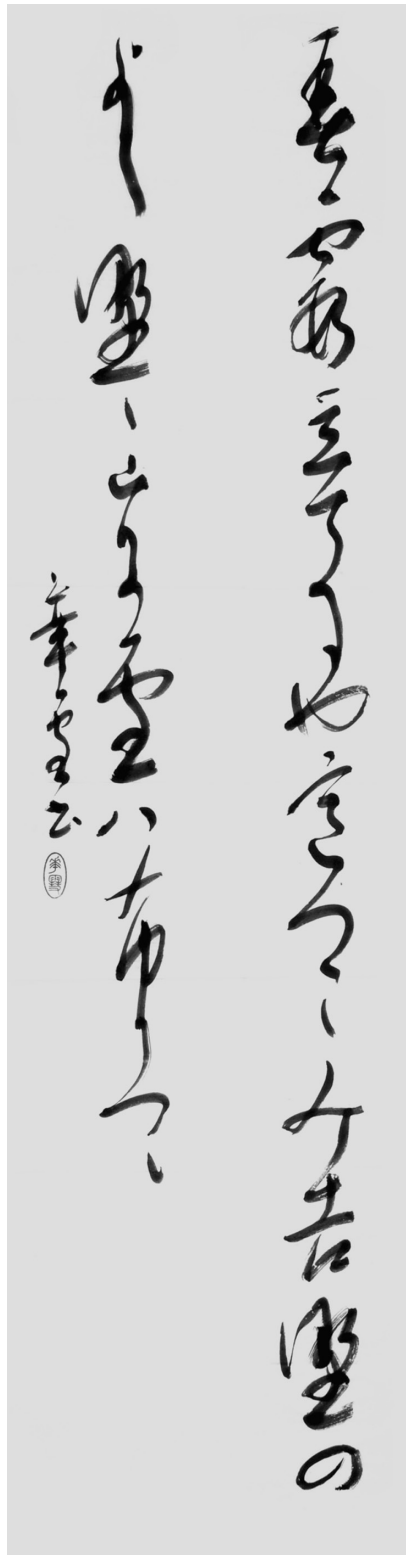 春霞立てるやいつこみ吉野の
よし野ゝ山に雪ハ布りつゝ
華雪書